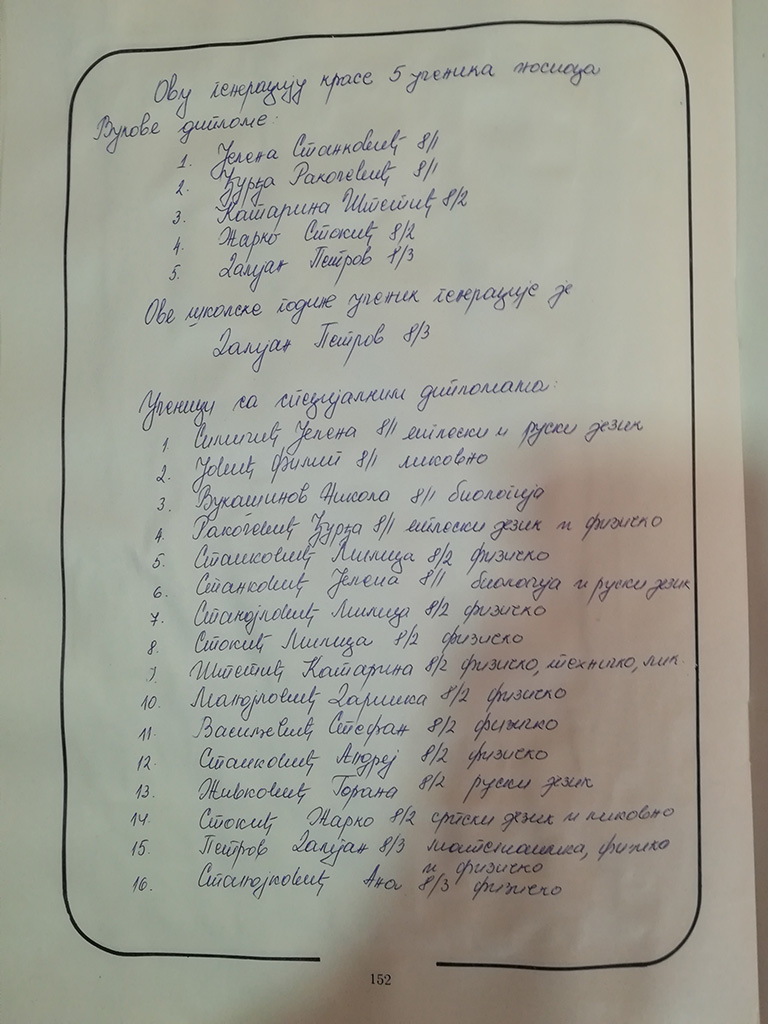 Ову генерацију красе 5 ученика носиоца
Вукове дипломе:
1. Јелена Станковић 8/1
2. Ђурђа Ракочевић 8/1
3. Катарина Штетић 8/2
4. Жарко Стокић 8/2
5. Дамјан Петров 8/3
Ове школске године ученик генерације је
Дамјан Петров 8/3
Ученици са специјалним дипломама:
1. Јелена 8/1 енглески и руски језик
2. Јовић Филип 8/1 ликовно
3. Вукашинов Никола 8/1 биологија
4. Ракочевић Ђурђа 8/1 енглески језик и физичко
5. Станковић Милица 8/2 физичко
6. Станковић Јелена 8/1 биологија и руски језик
7. Станојловић Милица 8/2 физичко
8. Стокић Милица 8/2 физичко
9. Штетић Катарина 8/2 физичко, техничко, лик.
10. Манојловић Даринка 8/2 физичко
11. Васиљевић Стефан 8/2 физичко
12. Станковић Андреј 8/2 физичко
13. Живковић Горана 8/2 руски језик
14. Стокић Жарко 8/2 српски језик и ликовно
15. Петров Дамјан 8/3 математика, физика
и физичко
16. Станојковић Ана 8/3 физичко
152